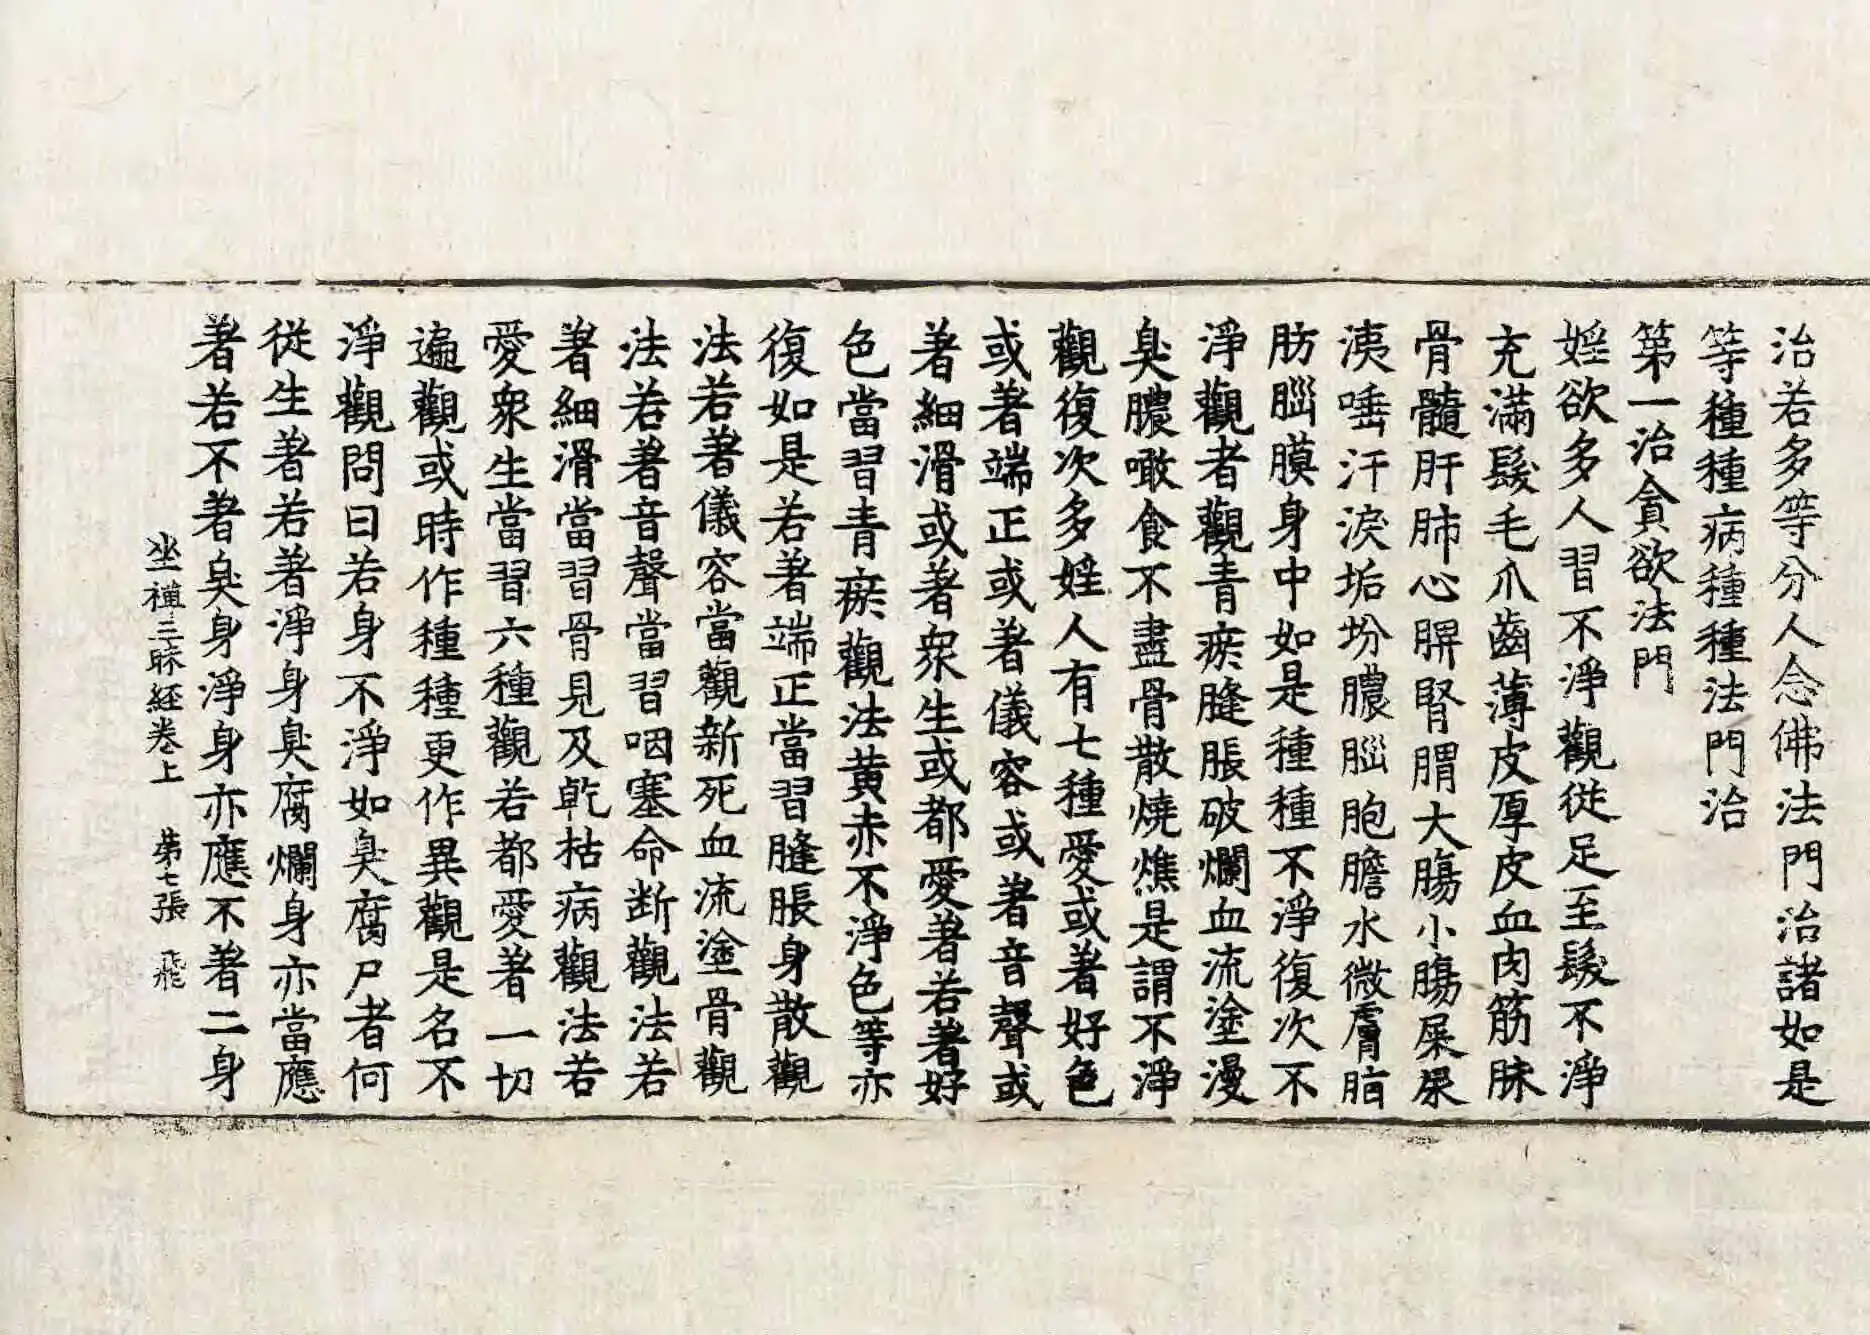 治若多等分人念佛法門治諸如是
等種種病種種法門治
第一治貪欲法門
婬欲多人習不淨觀從足至髮不淨
充滿髮毛爪齒薄皮厚皮血肉筋脉
骨髓肝肺心脾腎胃大腸小腸屎尿
洟唾汗淚垢坋膿腦胞膽水微膚脂
肪腦膜身中如是種種不淨復次不
淨觀者觀青瘀膖脹破爛血流塗漫
臭膿噉食不盡骨散燒燋是謂不淨
觀復次多婬人有七種愛或著好色
或著端正或著儀容或著音聲或
著細滑或著衆生或都愛著若著好
色當習青瘀觀法黃赤不淨色等亦
復如是若著端正當習膖脹身散觀
法若著儀容當觀新死血流塗骨觀
法若著音聲當習咽塞命斷觀法若
著細滑當習骨見及乾枯病觀法若
愛衆生當習六種觀若都愛著一切
遍觀或時作種種更作異觀是名不
淨觀問曰若身不淨如臭腐尸者何
從生著若著淨身臭腐爛身亦當應
著若不著臭身淨身亦應不著二身
坐禪三昧經卷上 第七張 飛